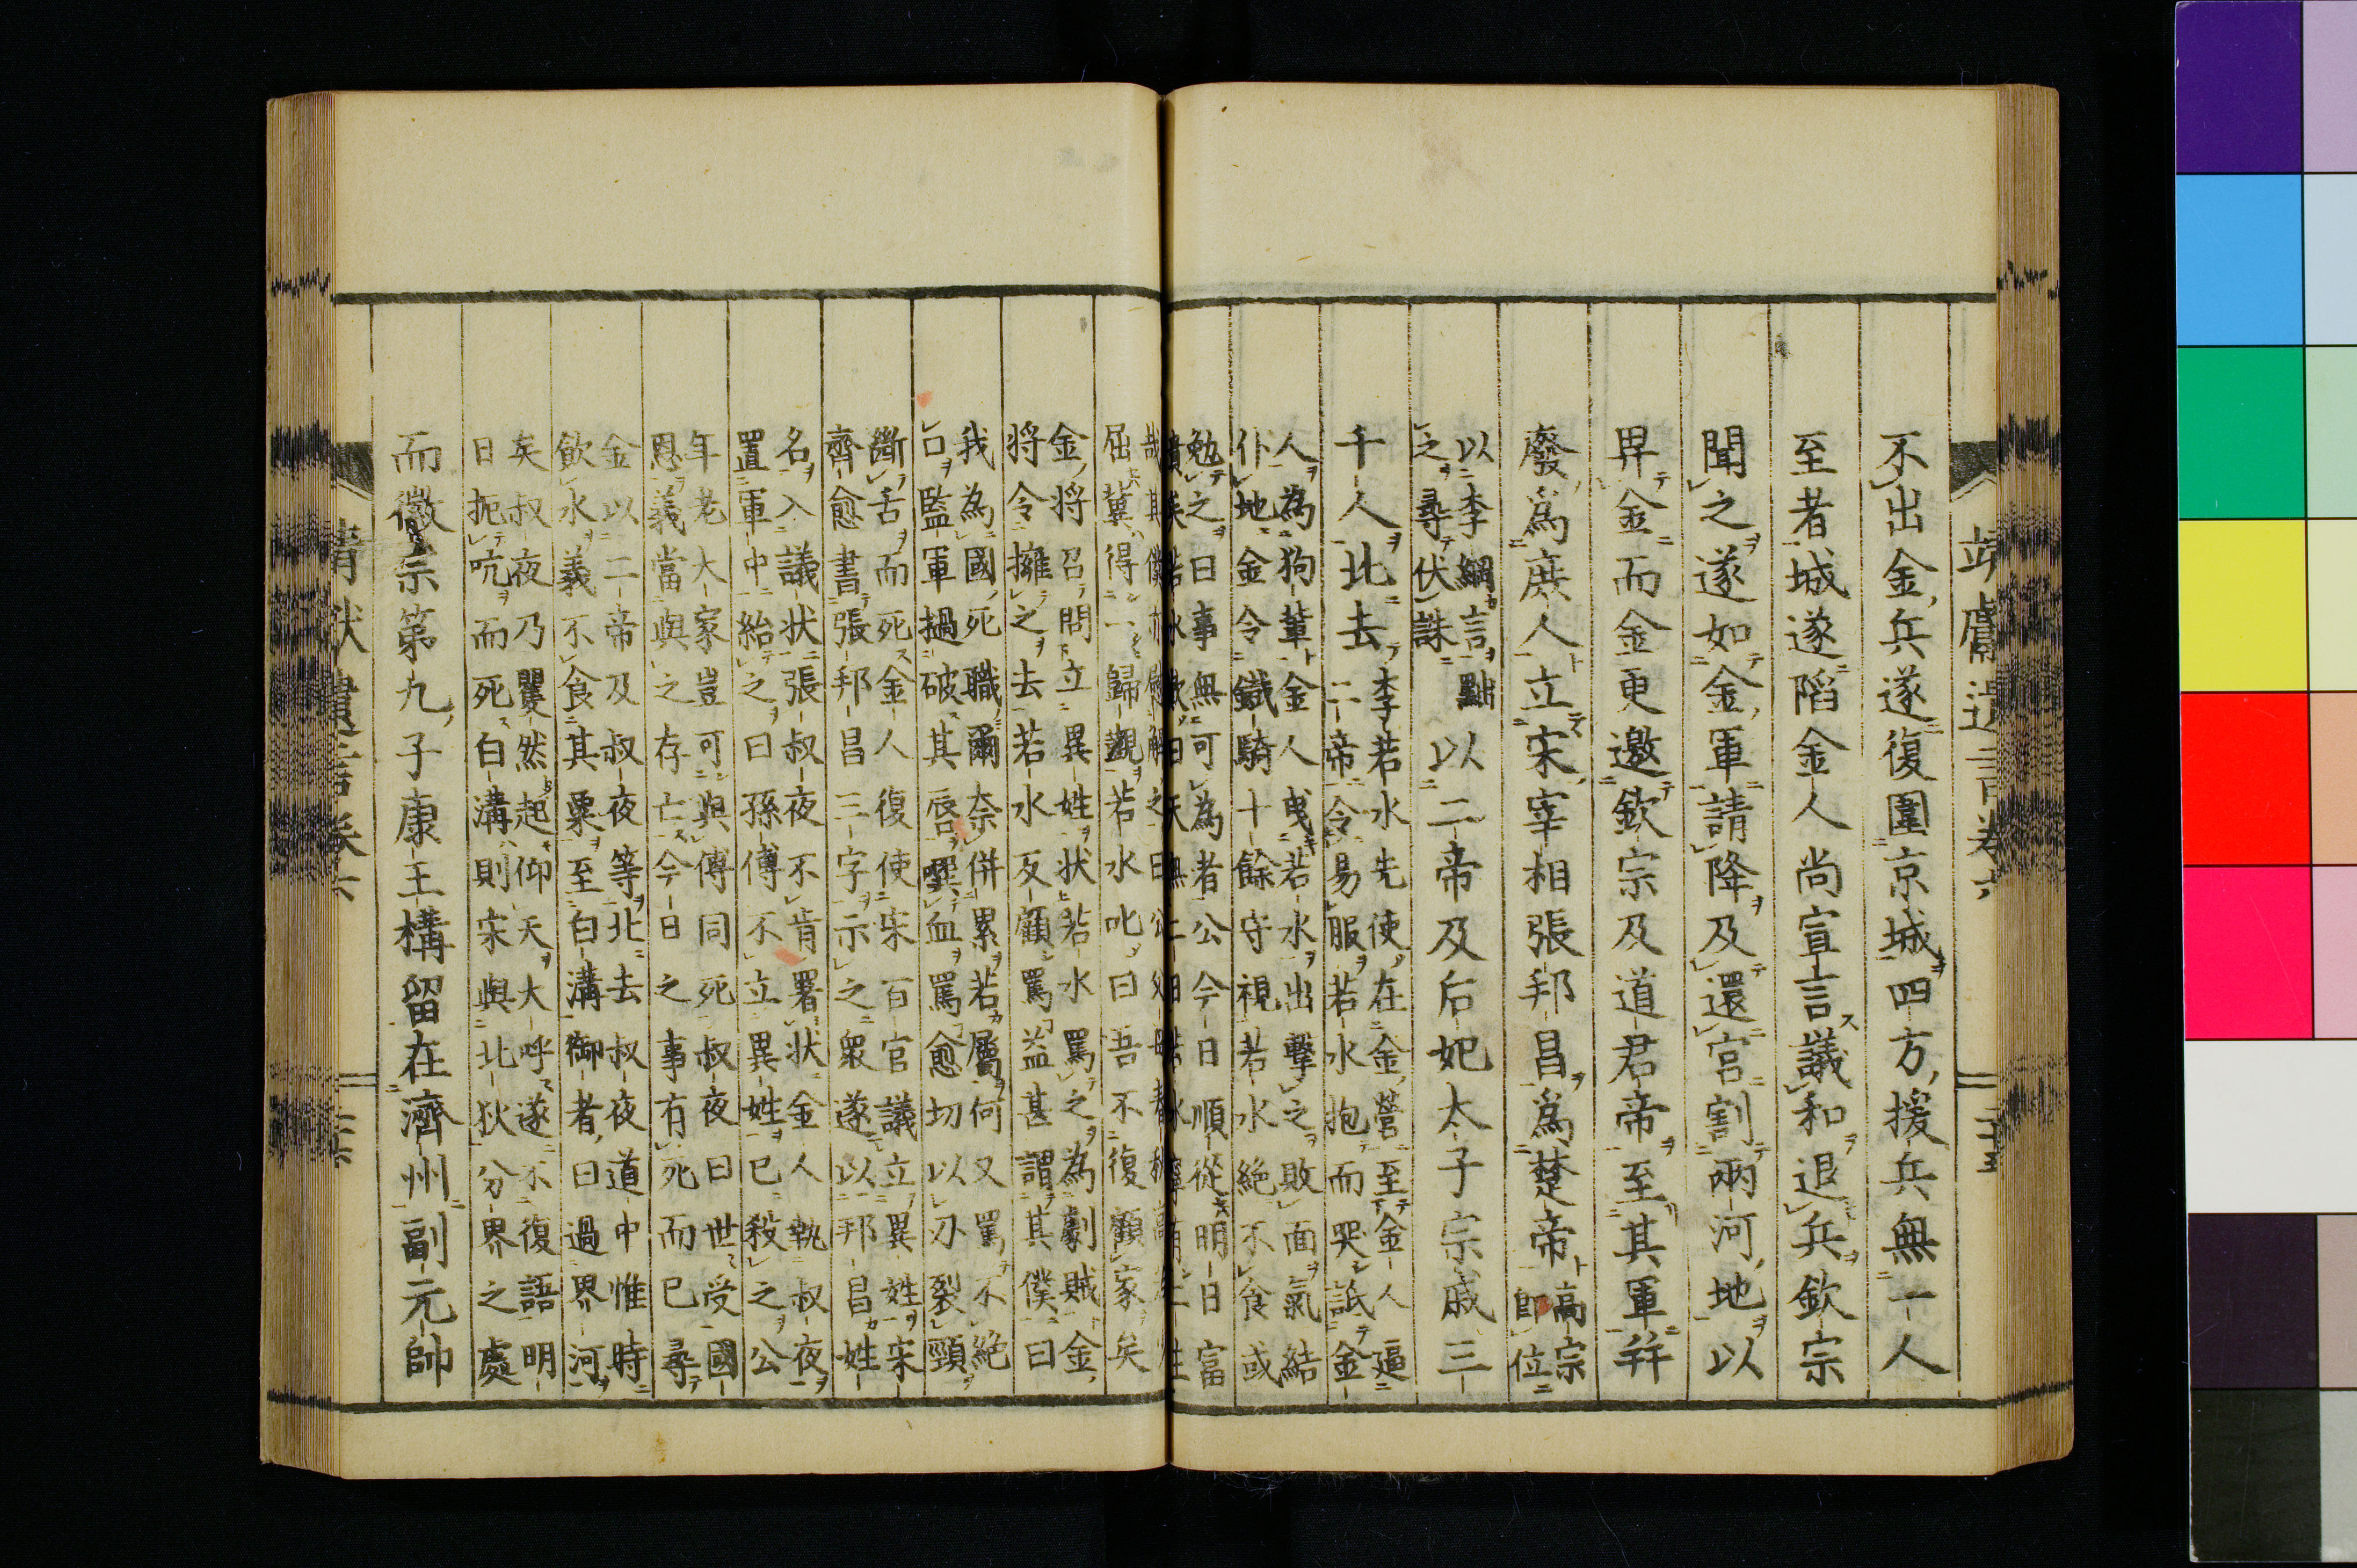 不出金兵遂復圍京城四方援兵無一人
至者城遂陷金人尚宣言議和退兵欽宗
聞之遂如金軍請降及還宮割兩河地以
畀金而金更邀欽宗及道君帝至其軍幷
廢爲庶人立宋宰相張邦昌爲楚帝
高宗
即位
以李綱言點
之尋伏誅
以二帝及后妃太子宗戚三
千人北去
李若水先使在金營至金人逼
二帝令易服若水抱而哭詆金
人為狗輩金人曵若水出擊之敗面氣結
仆地金令鐵騎十餘守視若水絶不食或
勉之曰事無可為者公今日順從明日富
屈冀得一歸覲若水叱曰吾不復顧家矣
金將召問立異姓状若水罵之為劇賊金
将令擁之去若水反顧罵益甚謂其僕曰
我為國死職爾奈併累若屬何又罵不絶
口監軍撾破其唇噀血罵愈切以刃裂頸
斷舌而死金人復使宋百官議立異姓宋
齊愈書張邦昌三字示之衆遂以邦昌姓
名入議状張叔夜不肯署状金人執叔夜
置軍中紿之曰孫傅不立異姓已殺之公
年老大家豈可與傅同死叔夜曰世受國
恩義當與之存亡今日之事有死而已尋
金以二帝及叔夜等北去叔夜道中惟時
飲水義不食其粟至白溝御者曰過界河
矣叔夜乃矍然起仰天大呼遂不復語明
日扼吭而死白溝則宋與北狄分界之處
而徽宗第九子康王構留在濟州副元帥